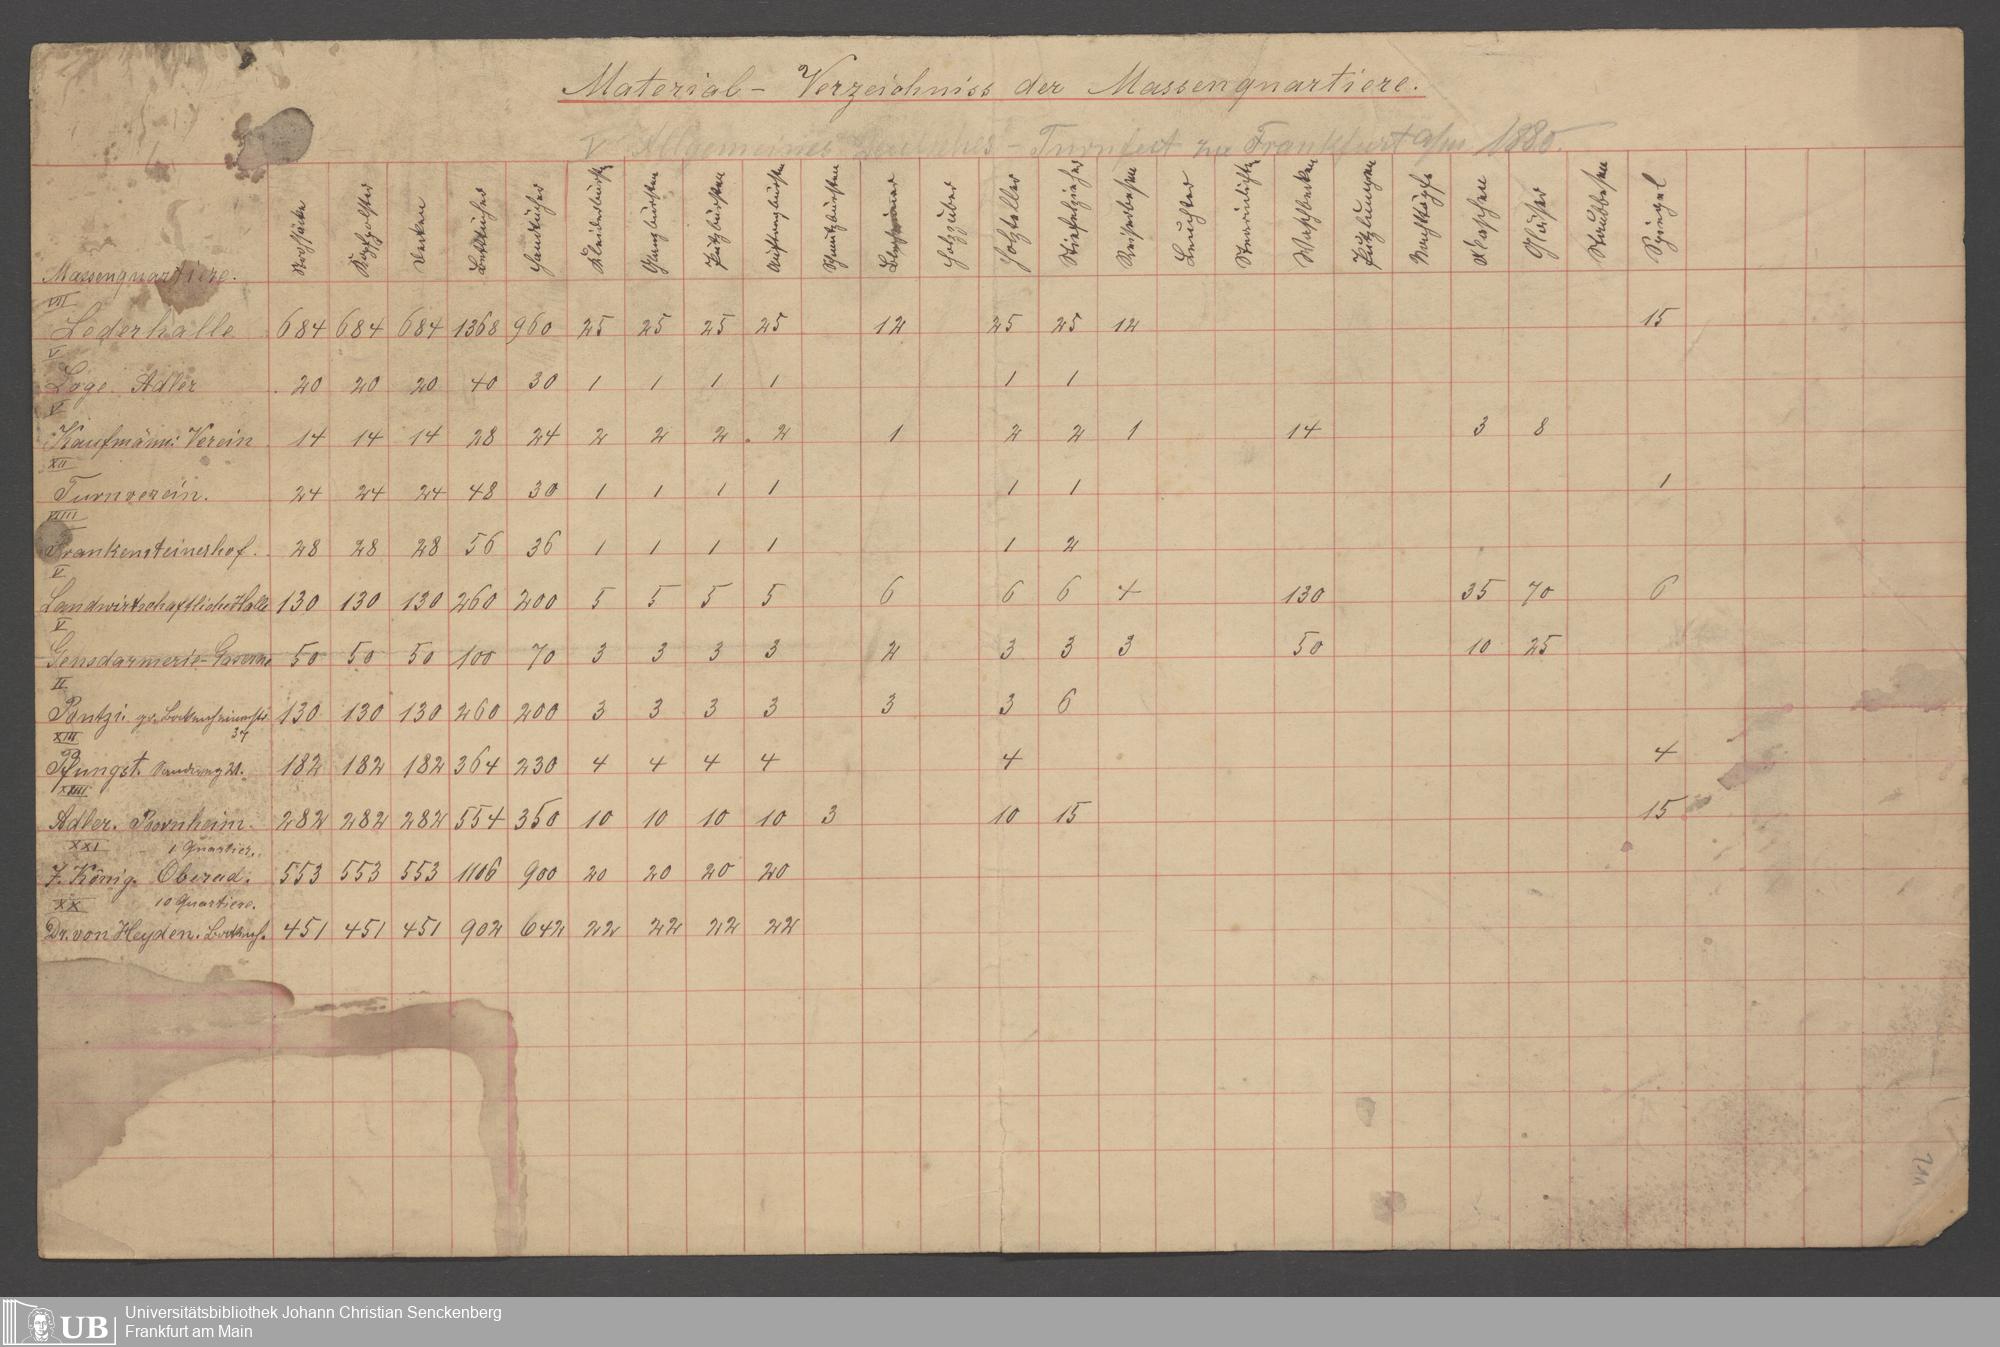 Material - Verzeichniss der Massenquartiere.
V Allgemeines Deutsches - Turnfest zu Frankfurt a/m 1880.
Massenquartiere. Strohsäcke Kopfpolster Decken Betttücher Handtücher Kleiderbürsten Glanzbürsten Putzbürsten Schmutzbürsten Holzzuber Holzteller Stiefelzieher Reiserbesen Leuchter Waschbecken Nachttöpfe Flaschen Gläser Staubbesen Spiegel
VII
Lederhalle 684 684 684 1368 960 25 25 25 25 12 25 25 12 15
V
Loge Adler 20 20 20 40 30 1 1 1 1 1 1
V
Kaufmänn: Verein 14 14 14 28 24 2 2 2 2 1 2 2 1 14 3 8
XII
Turnverein. 24 24 24 48 30 1 1 1 1 1 1 1
VIIII
Frankensteinerhof. 28 28 28 56 36 1 1 1 1 1 2
V
Landwirtschaftliche Halle 130 130 130 260 200 5 5 5 5 6 6 6 4 130 35 70 6
V
Gensdarmerie-Caserne 50 50 50 100 70 3 3 3 3 2 3 3 3 50 10 25
II
Pontzi. gr. Bockenheimerstr 37 130 130 130 260 200 3 3 3 3 3 3 6
XIII
Pfungst. Sandweg 182 182 182 364 230 4 4 4 4 4 4
XIIII
Adler. Bornheim. 282 282 282 554 350 10 10 10 10 3 10 15 15
XXI 1 Quartier.
J. König. Oberrad. 553 553 553 1106 900 20 20 20 20
XX 10 Quartiere.
Dr. von Heyden. Bockenh. 451 451 451 902 642 22 22 22 22
UB
Universitätsbibliothek Johann Christian Senckenberg
Frankfurt am Main